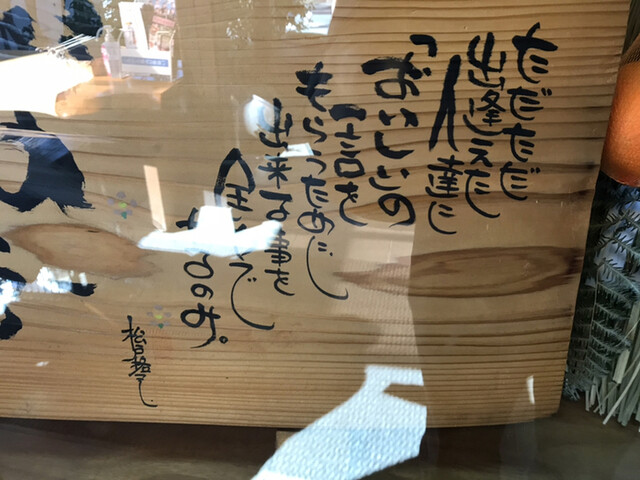 ただただ
出逢えた
人達に
「おいしいの
一言を
もらうために
出来る事を
全力で
やるのみ。